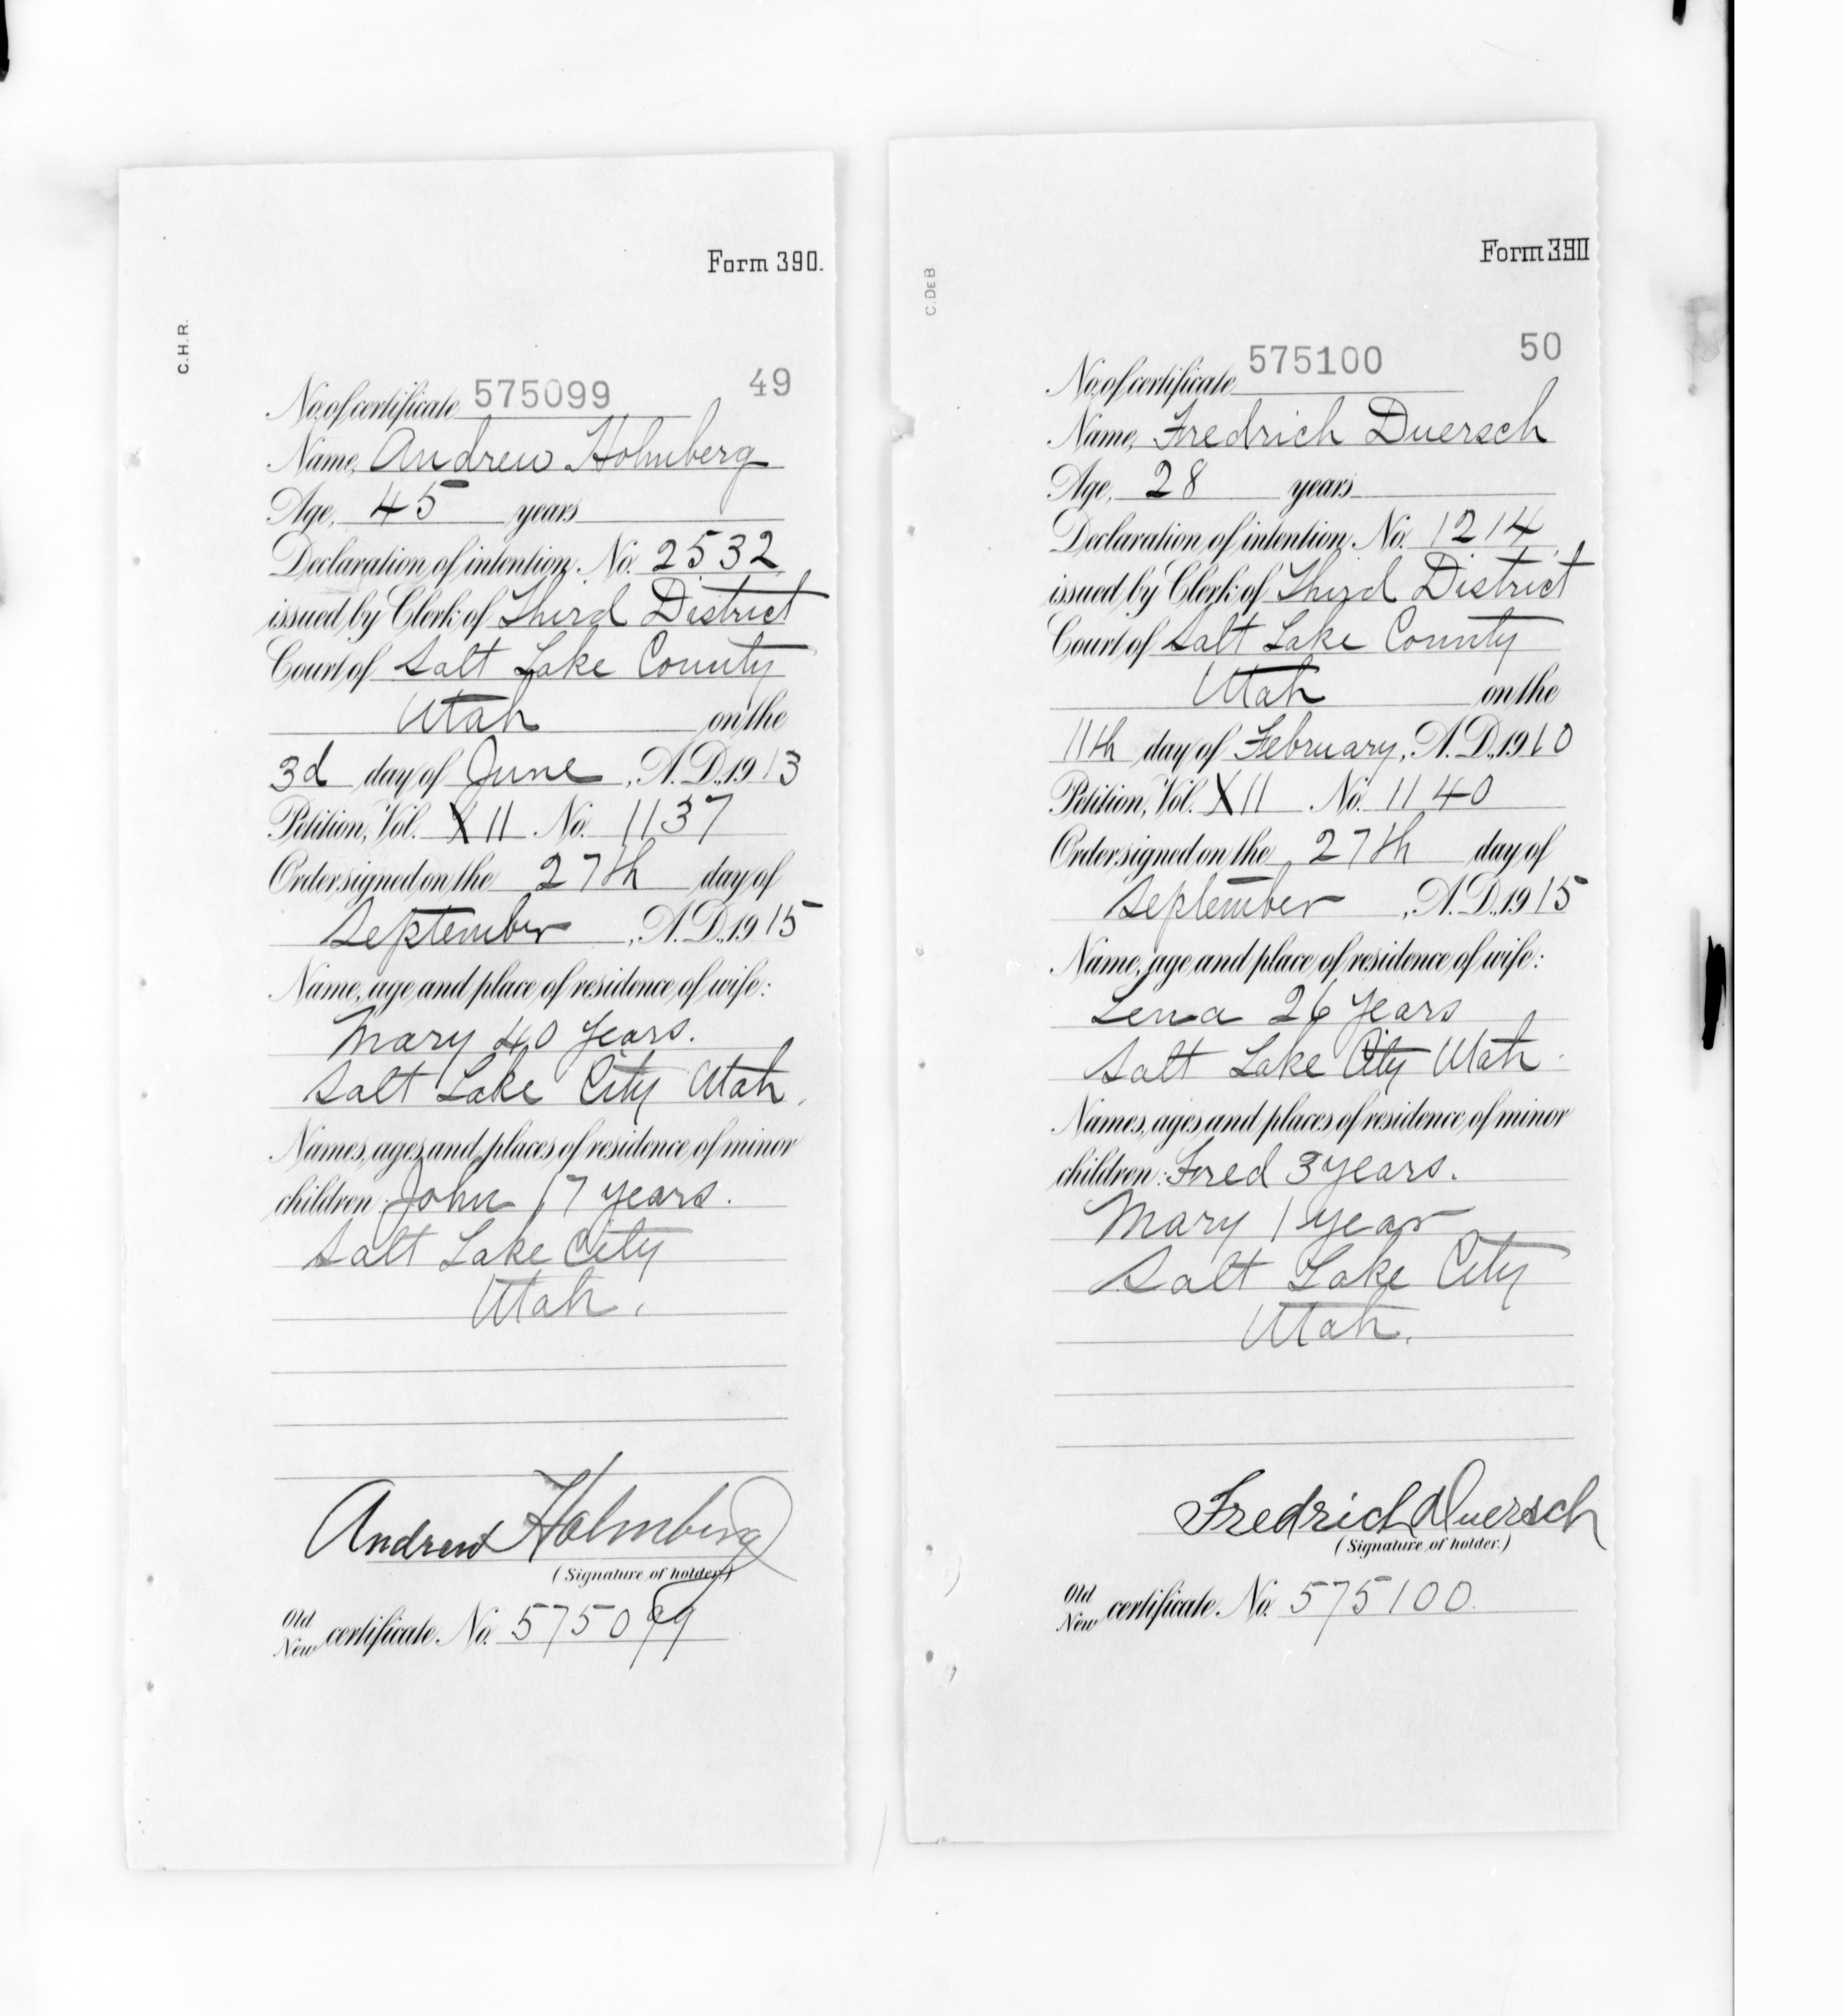 Form 390.
C.H.R.
No. of certificate 575099 49
Name, Andrew Holmberg
Age, 45 years
Declaration of intention, No. 2532
issued by Clerk of Third District
Court of Salt Lake County
Utah on the
3d day of June, A.D., 1913
Petition, Vol. XII No. 1137
Order signed on the 27th day of
September, A.D., 1915
Name, age and place of residence of wife:
Mary 40 years.
Salt Lake City Utah.
Names, ages and places of residence of minor
children: John 17 years.
Salt Lake City
Utah.
Andrew Holmberg
(Signature of holder.)
Old
New certificate No. 575099
Form 390
C.DEB
No. of certificate 575100 50
Name, Fredrich Duersch
Age, 28 years
Declaration of intention, No. 1214,
issued by Clerk of Third District
Court of Salt Lake County
Utah on the
11th day of February, A.D., 1910
Petition, Vol. XII No. 1140
Order signed on the 27th day of
September, A.D., 1915
Name, age and place of residence of wife:
Lena 26 years
Salt Lake City Utah.
Names, ages and places of residence of minor
children: Fred 3 years.
Mary 1 year
Salt Lake City
Utah.
Fredrich Duersch
(Signature of holder.)
Old
New certificate No. 575100.